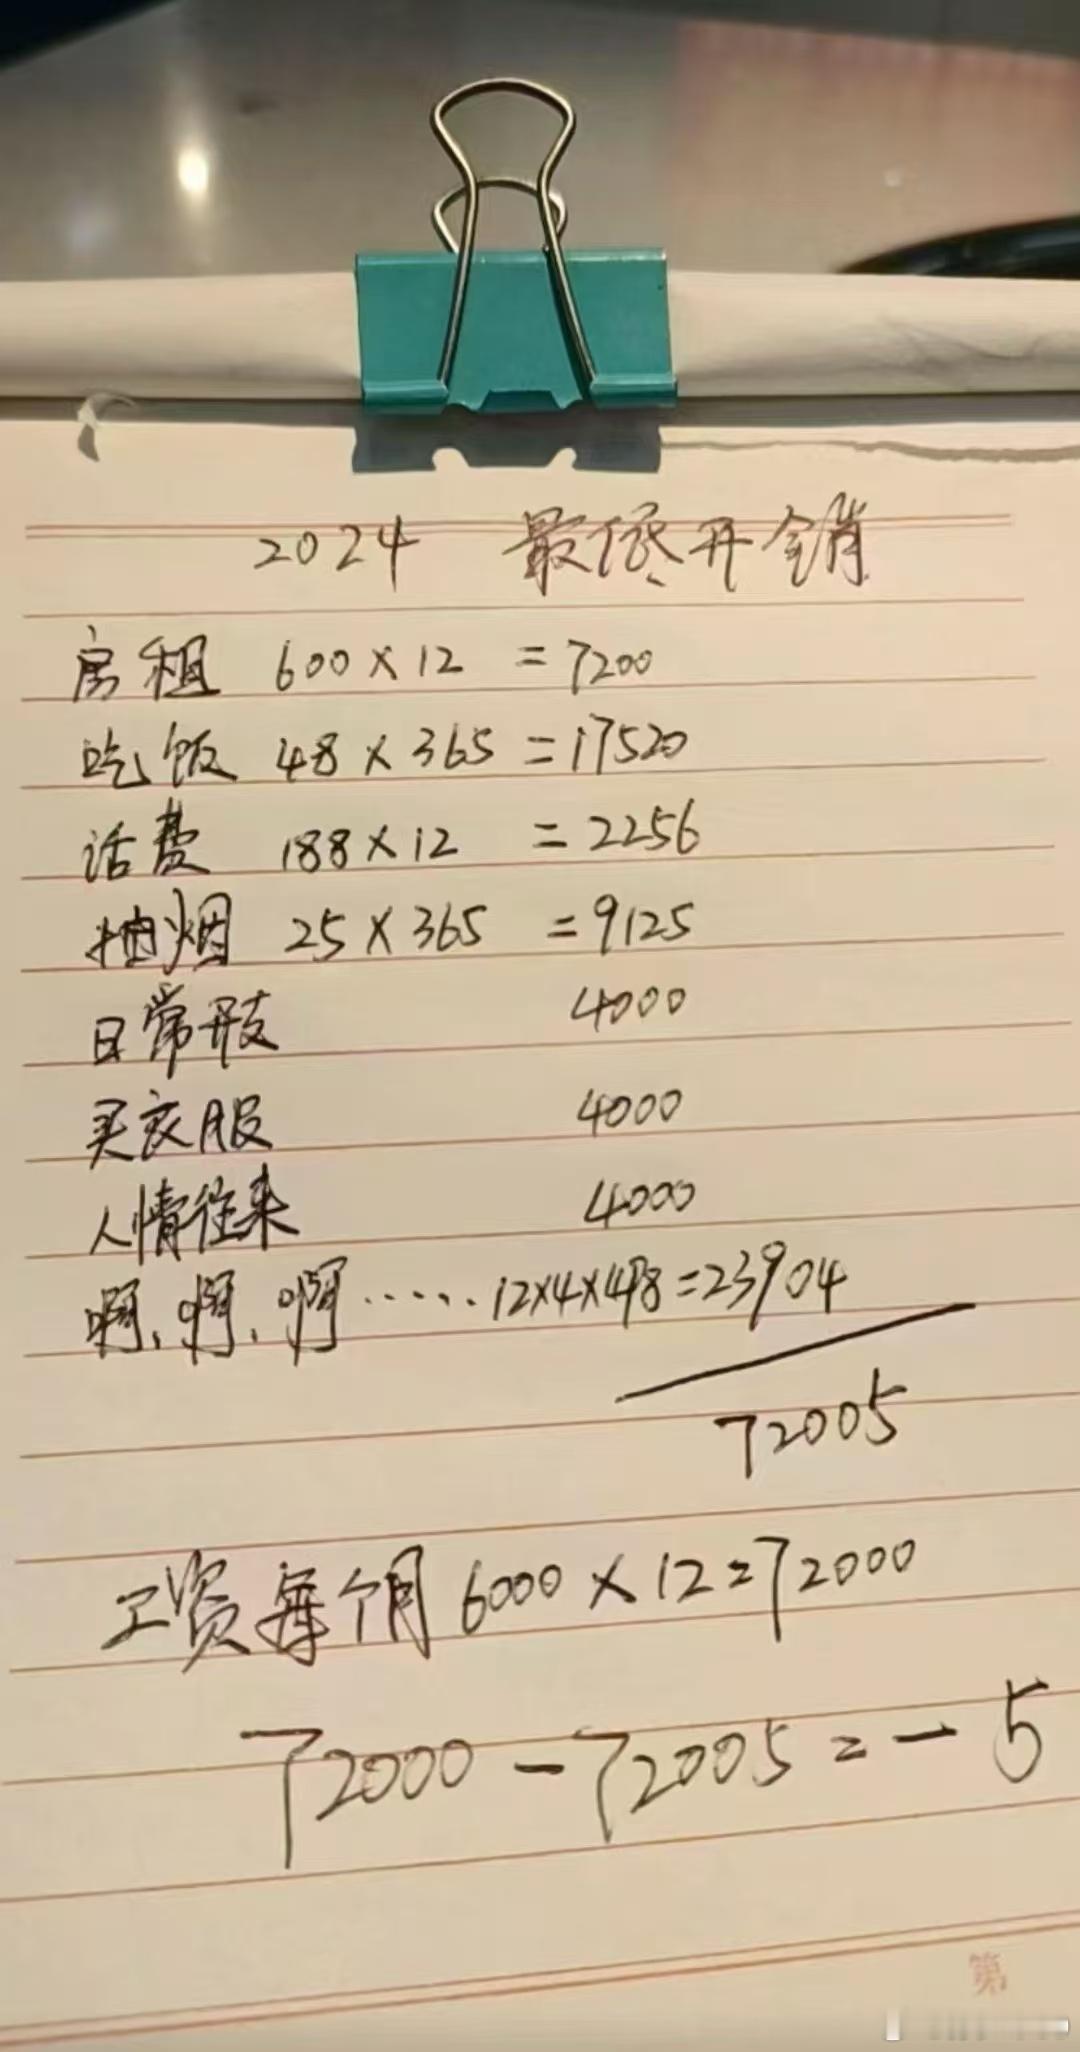 2024 最终开销
房租 600×12 =7200
吃饭 48×365 =17520
话费 188×12 =2256
抽烟 25×365 =9125
日常开支 4000
买衣服 4000
人情往来 4000
啊、啊、啊……12×4×498=23904
72005
工资每个月6000×12=72000
72000-72005=-5
第